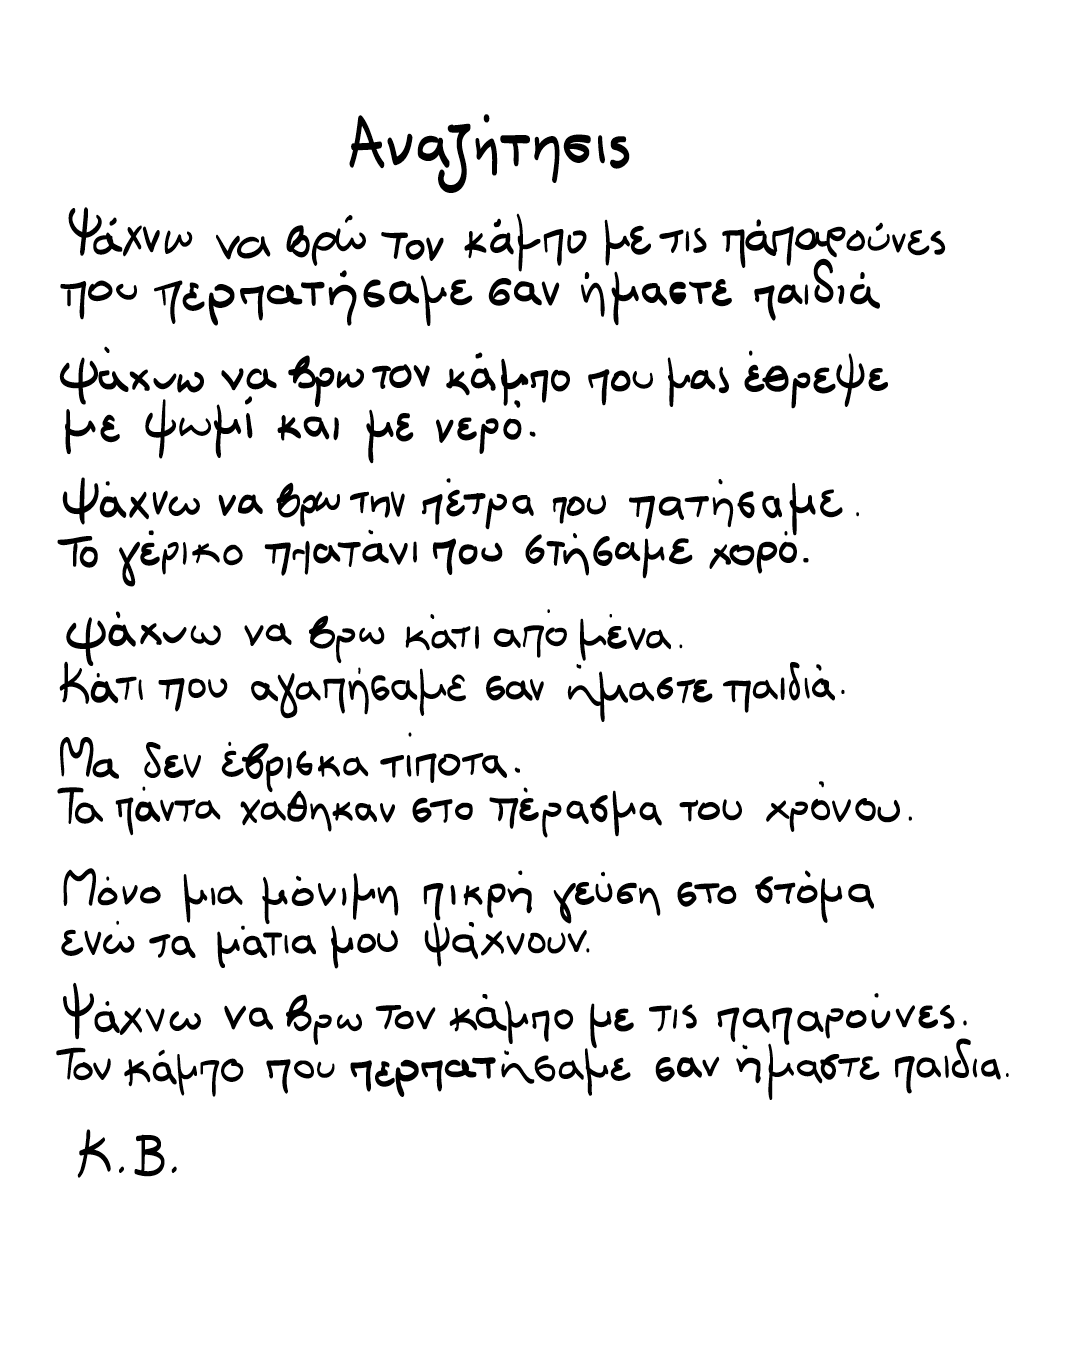 Αναζήτησις
Ψάχνω να βρώ τον κάμπο με τις πάπαρούνες
που περπατήσαμε σαν ήμαστε παιδιά
Ψάχνω να βρω τον κάμπο που μας έθρεψε
με ψωμί και με νερό.
Ψάχνω να βρω την πέτρα που πατήσαμε.
Το γέρικο πλατάνι που στήσαμε χορό.
Ψάχνω να βρω κάτι από μένα.
Κάτι που αγαπήσαμε σαν ήμαστε παιδιά.
Μα δεν έβρισκα τίποτα.
Τα πάντα χάθηκαν στο πέρασμα του χρόνου.
Μόνο μια μόνιμη πικρή γεύση στο στόμα
ενώ τα μάτια μου ψάχνουν.
Ψάχνω να βρω τον κάμπο με τις παπαρούνες.
Τον κάμπο που περπατήσαμε σαν ήμαστε παιδια.
Κ.Β.